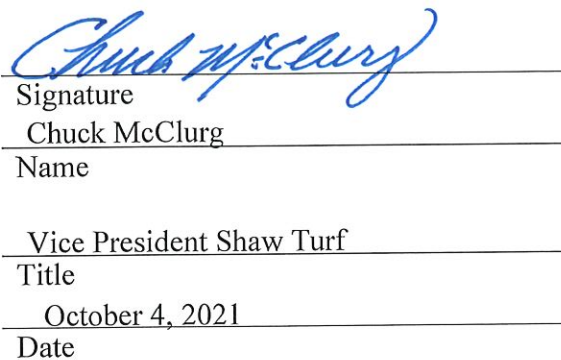 Chuck McClurg
Signature
Chuck McClurg
Name
Vice President Shaw Turf
Title
October 4, 2021
Date